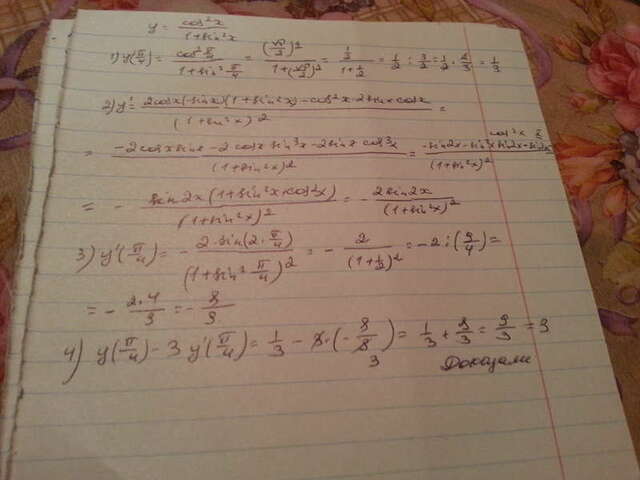 y = cos²x / (1+sin²x)
1) y(π/4) = cos²π/4 / (1+sin²π/4) = (√2/2)² / (1+(√2/2)²) = 1/2 / (1+1/2) = 1/2 : 3/2 = 1/2 · 2/3 = 1/3
2) y' = (2cosx(-sinx)(1+sin²x) - cos²x·2sinx cosx) / (1+sin²x)² =
= (-2cosx sinx - 2cosx sin³x - 2sinx cos³x) / (1+sin²x)² = (-sin2x - sin²x sin2x - sin2x cos²x) / (1+sin²x)² =
= - sin2x(1+sin²x+cos²x) / (1+sin²x)² = - 2sin2x / (1+sin²x)²
3) y'(π/4) = - 2·sin(2·π/4) / (1+sin²π/4)² = - 2 / (1+1/2)² = -2 : (9/4) =
= - 2·4 / 9 = - 8/9
4) y(π/4) - 3 y'(π/4) = 1/3 - 3·(-8/9) = 1/3 + 8/3 = 9/3 = 3
Доказали